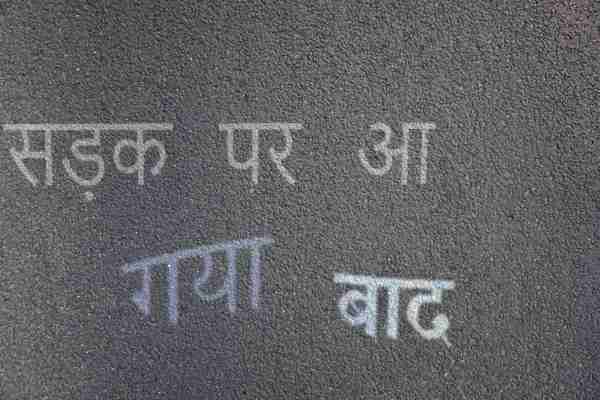 सड़क पर आ
गया बाद